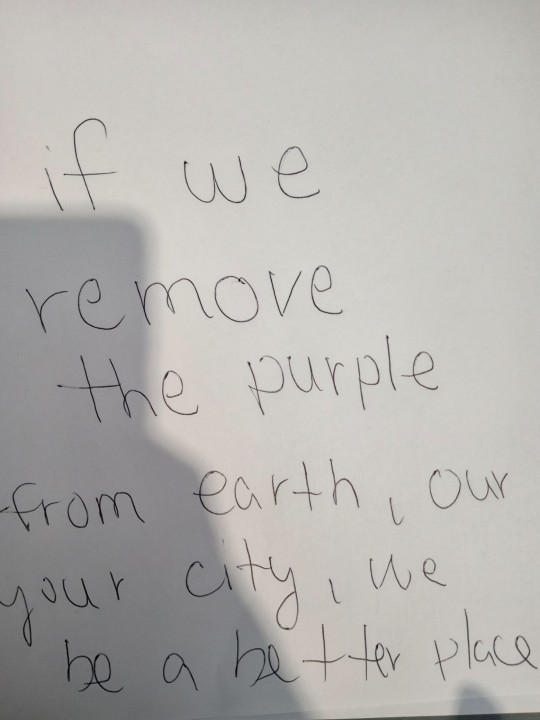 if we
remove
the purple
from earth, our
your city, we
be a better place